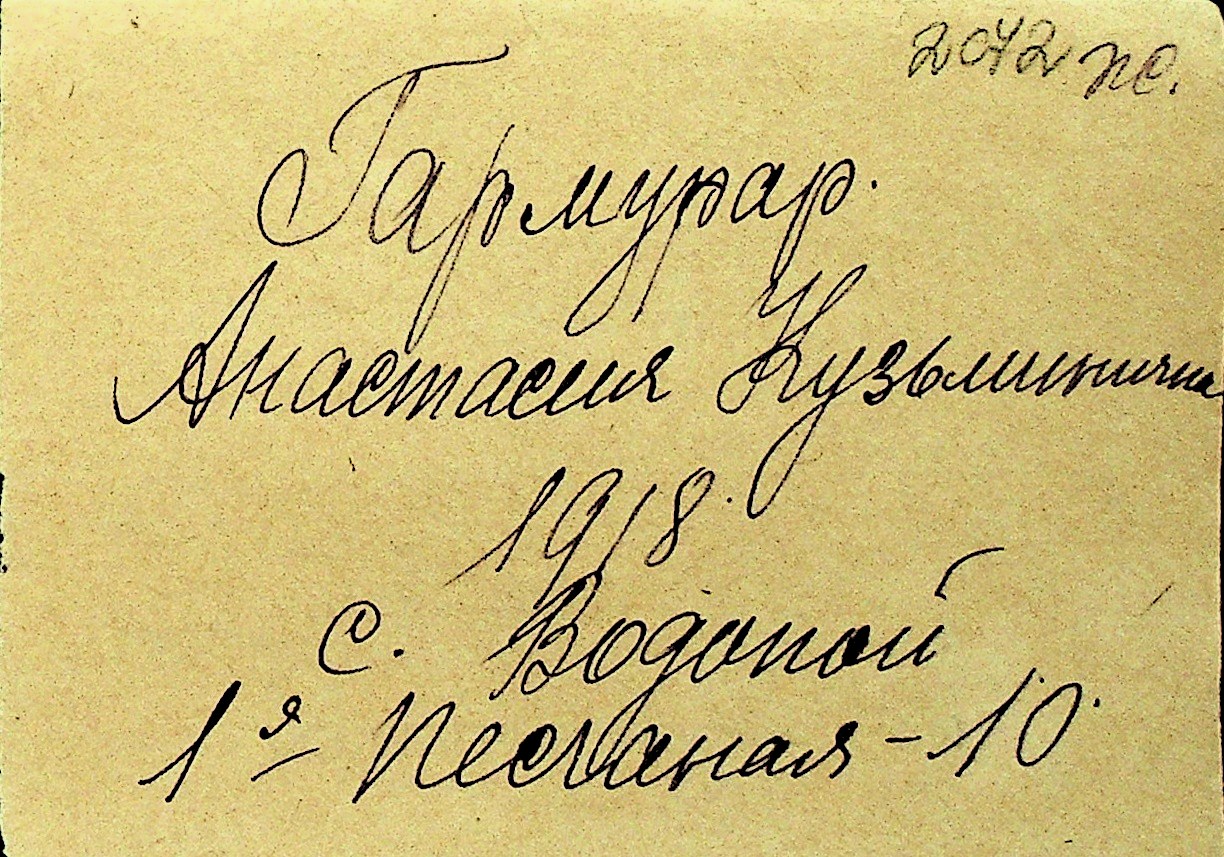 2042 пс.
Гармурар.
Анастасия Кузьминична
1918.
с. Водопой
1я Песчаная - 10.